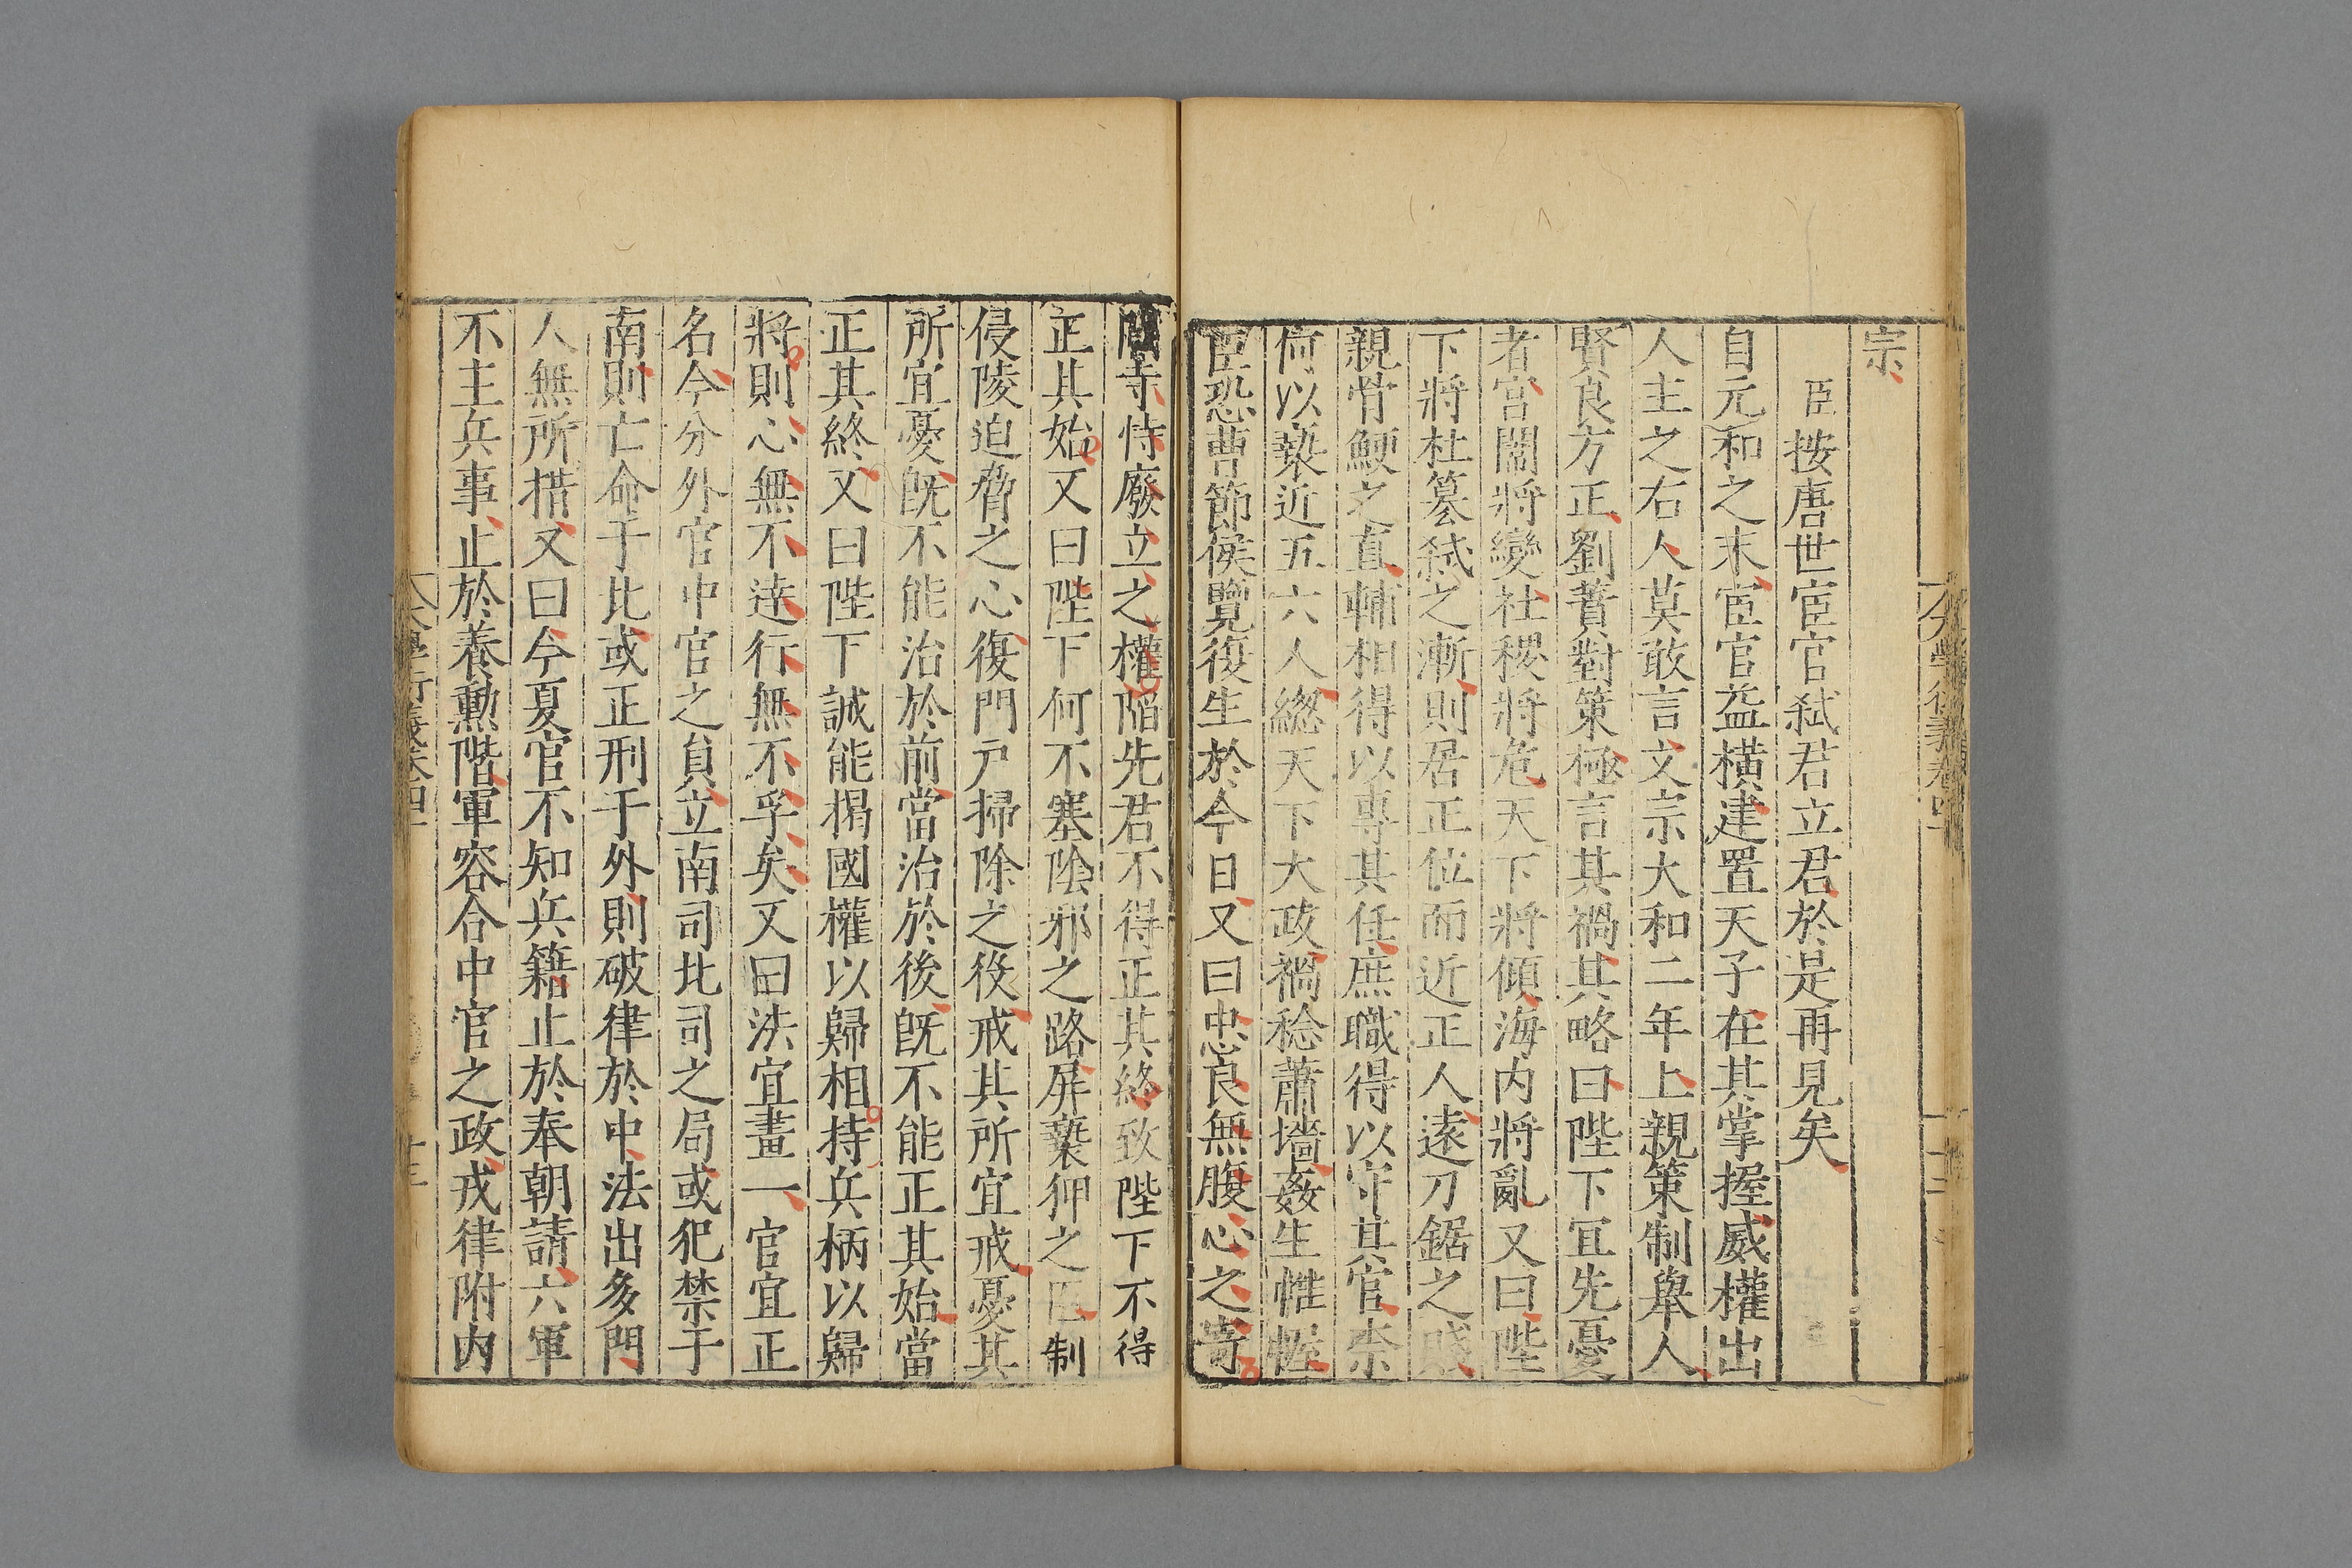 宗
臣按唐世宦官弑君立君於是再見矣
自元和之末宦官益橫建置天子在其掌握威權出
人主之右人莫敢言文宗大和二年上親策制舉人
賢良方正劉蕡對策極言其禍其略曰陛下宜先憂
者宮闈將變社稷將危天下將傾海内將亂又曰陛
下將杜篡弑之漸則居正位而近正人遠刀鋸之賤
親骨鯁之直輔相得以專其任庶職得以守其官柰
何以褻近五六人緫天下大政禍稔蕭墻姦生帷幄
臣恐曹節侯覽復生於今日又曰忠良無腹心之寄
閽寺恃廢立之權陷先君不得正其終致陛下不得
正其始又曰陛下何不塞陰邪之路屏褻狎之臣制
侵陵迫脅之心復門戸掃除之役戒其所宜戒憂其
所宜憂旣不能治於前當治於後旣不能正其始當
正其終又曰陛下誠能揭國權以歸相持兵柄以歸
將則心無不逹行無不孚矣又曰法宜畫一官宜正
名今分外官中官之貟立南司北司之局或犯禁于
南則亡命于北或正刑于外則破律於中法出多門
人無所措又曰今夏官不知兵籍止於奉朝請六軍
不主兵事止於養勲階軍容合中官之政戎律附内
大學衍義卷四
十三